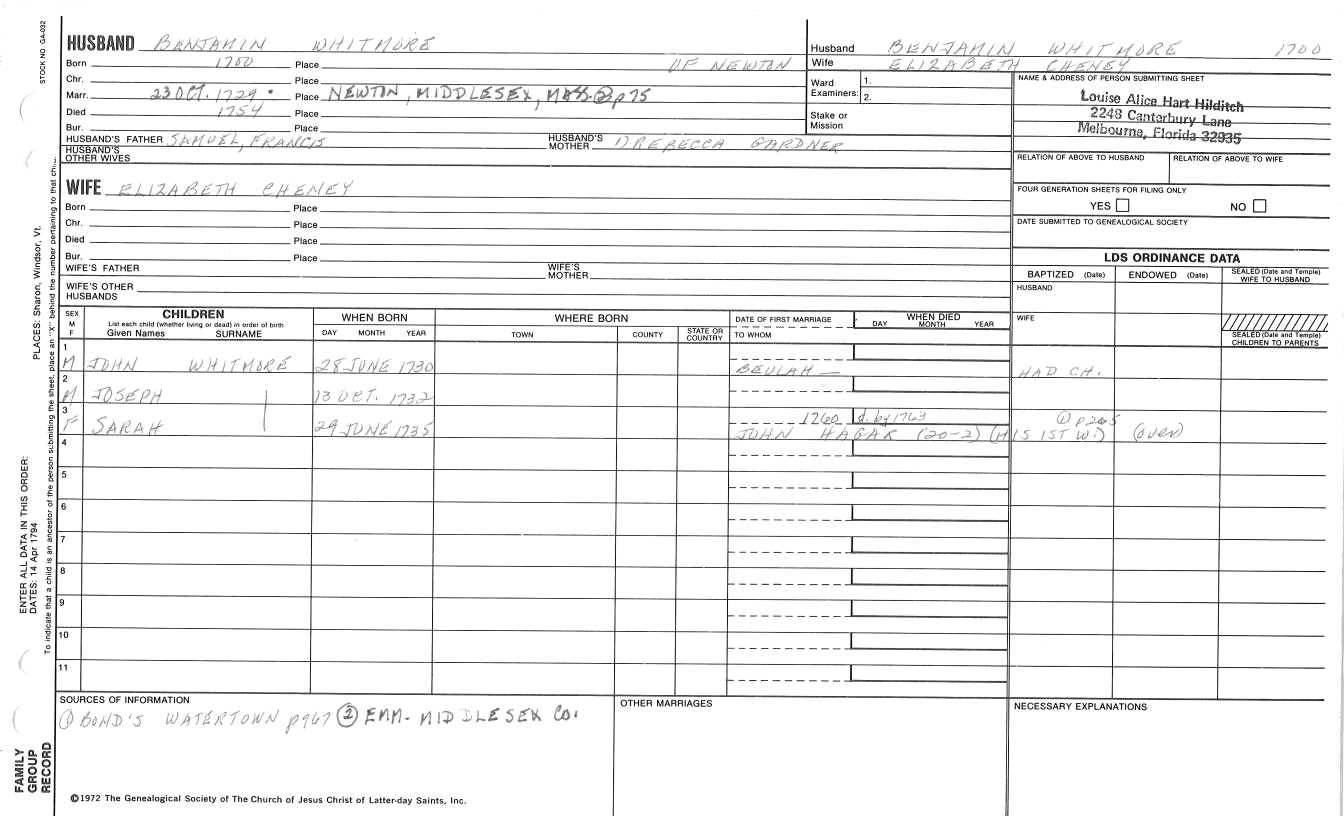 STOCK NO GA-032
HUSBAND BENJAMIN WHITMORE
Born 1700 Place OF NEWTON
Chr. Place
Marr. 23 OCT. 1729 Place NEWTON, MIDDLESEX, MASS. ② p 75
Died 1754 Place
Bur. Place
HUSBAND'S FATHER SAMUEL, FRANCIS HUSBAND'S MOTHER 1) REBECCA GARDNER
HUSBAND'S OTHER WIVES
Husband BENJAMIN WHITMORE 1700
Wife ELIZABETH CHENEY
Ward Examiners: 1.
2.
Stake or Mission
NAME & ADDRESS OF PERSON SUBMITTING SHEET
Louise Alice Hart Hilditch
2248 Canterbury Lane
Melbourne, Florida 32935
RELATION OF ABOVE TO HUSBAND RELATION OF ABOVE TO WIFE
FOUR GENERATION SHEETS FOR FILING ONLY
YES NO
DATE SUBMITTED TO GENEALOGICAL SOCIETY
WIFE ELIZABETH CHENEY
Born Place
Chr. Place
Died Place
Bur. Place
WIFE'S FATHER WIFE'S MOTHER
WIFE'S OTHER HUSBANDS
LDS ORDINANCE DATA
BAPTIZED (Date) ENDOWED (Date) SEALED (Date and Temple) WIFE TO HUSBAND
HUSBAND
WIFE
SEALED (Date and Temple) CHILDREN TO PARENTS
SEX M F
CHILDREN
List each child (whether living or dead) in order of birth
Given Names SURNAME
WHEN BORN
DAY MONTH YEAR
WHERE BORN
TOWN COUNTY STATE OR COUNTRY
DATE OF FIRST MARRIAGE
TO WHOM
WHEN DIED
DAY MONTH YEAR
1 M JOHN WHITMORE 28 JUNE 1730 BEULAH — HAD CH.
2 M JOSEPH 13 OCT. 1732
3 F SARAH 29 JUNE 1735 1760 d. by 1763 ① p265
JOHN HAGAR (20-2) (HIS 1ST W.) (over)
4
5
6
7
8
9
10
11
SOURCES OF INFORMATION
① BOND'S WATERTOWN p967 ② EMM- MIDDLESEX CO.
OTHER MARRIAGES
NECESSARY EXPLANATIONS
©1972 The Genealogical Society of The Church of Jesus Christ of Latter-day Saints, Inc.
FAMILY GROUP RECORD
ENTER ALL DATA IN THIS ORDER:
DATES: 14 Apr 1794
PLACES: Sharon, Windsor, Vt.
To indicate that a child is an ancestor of the person submitting the sheet, place an "X" behind the number pertaining to that